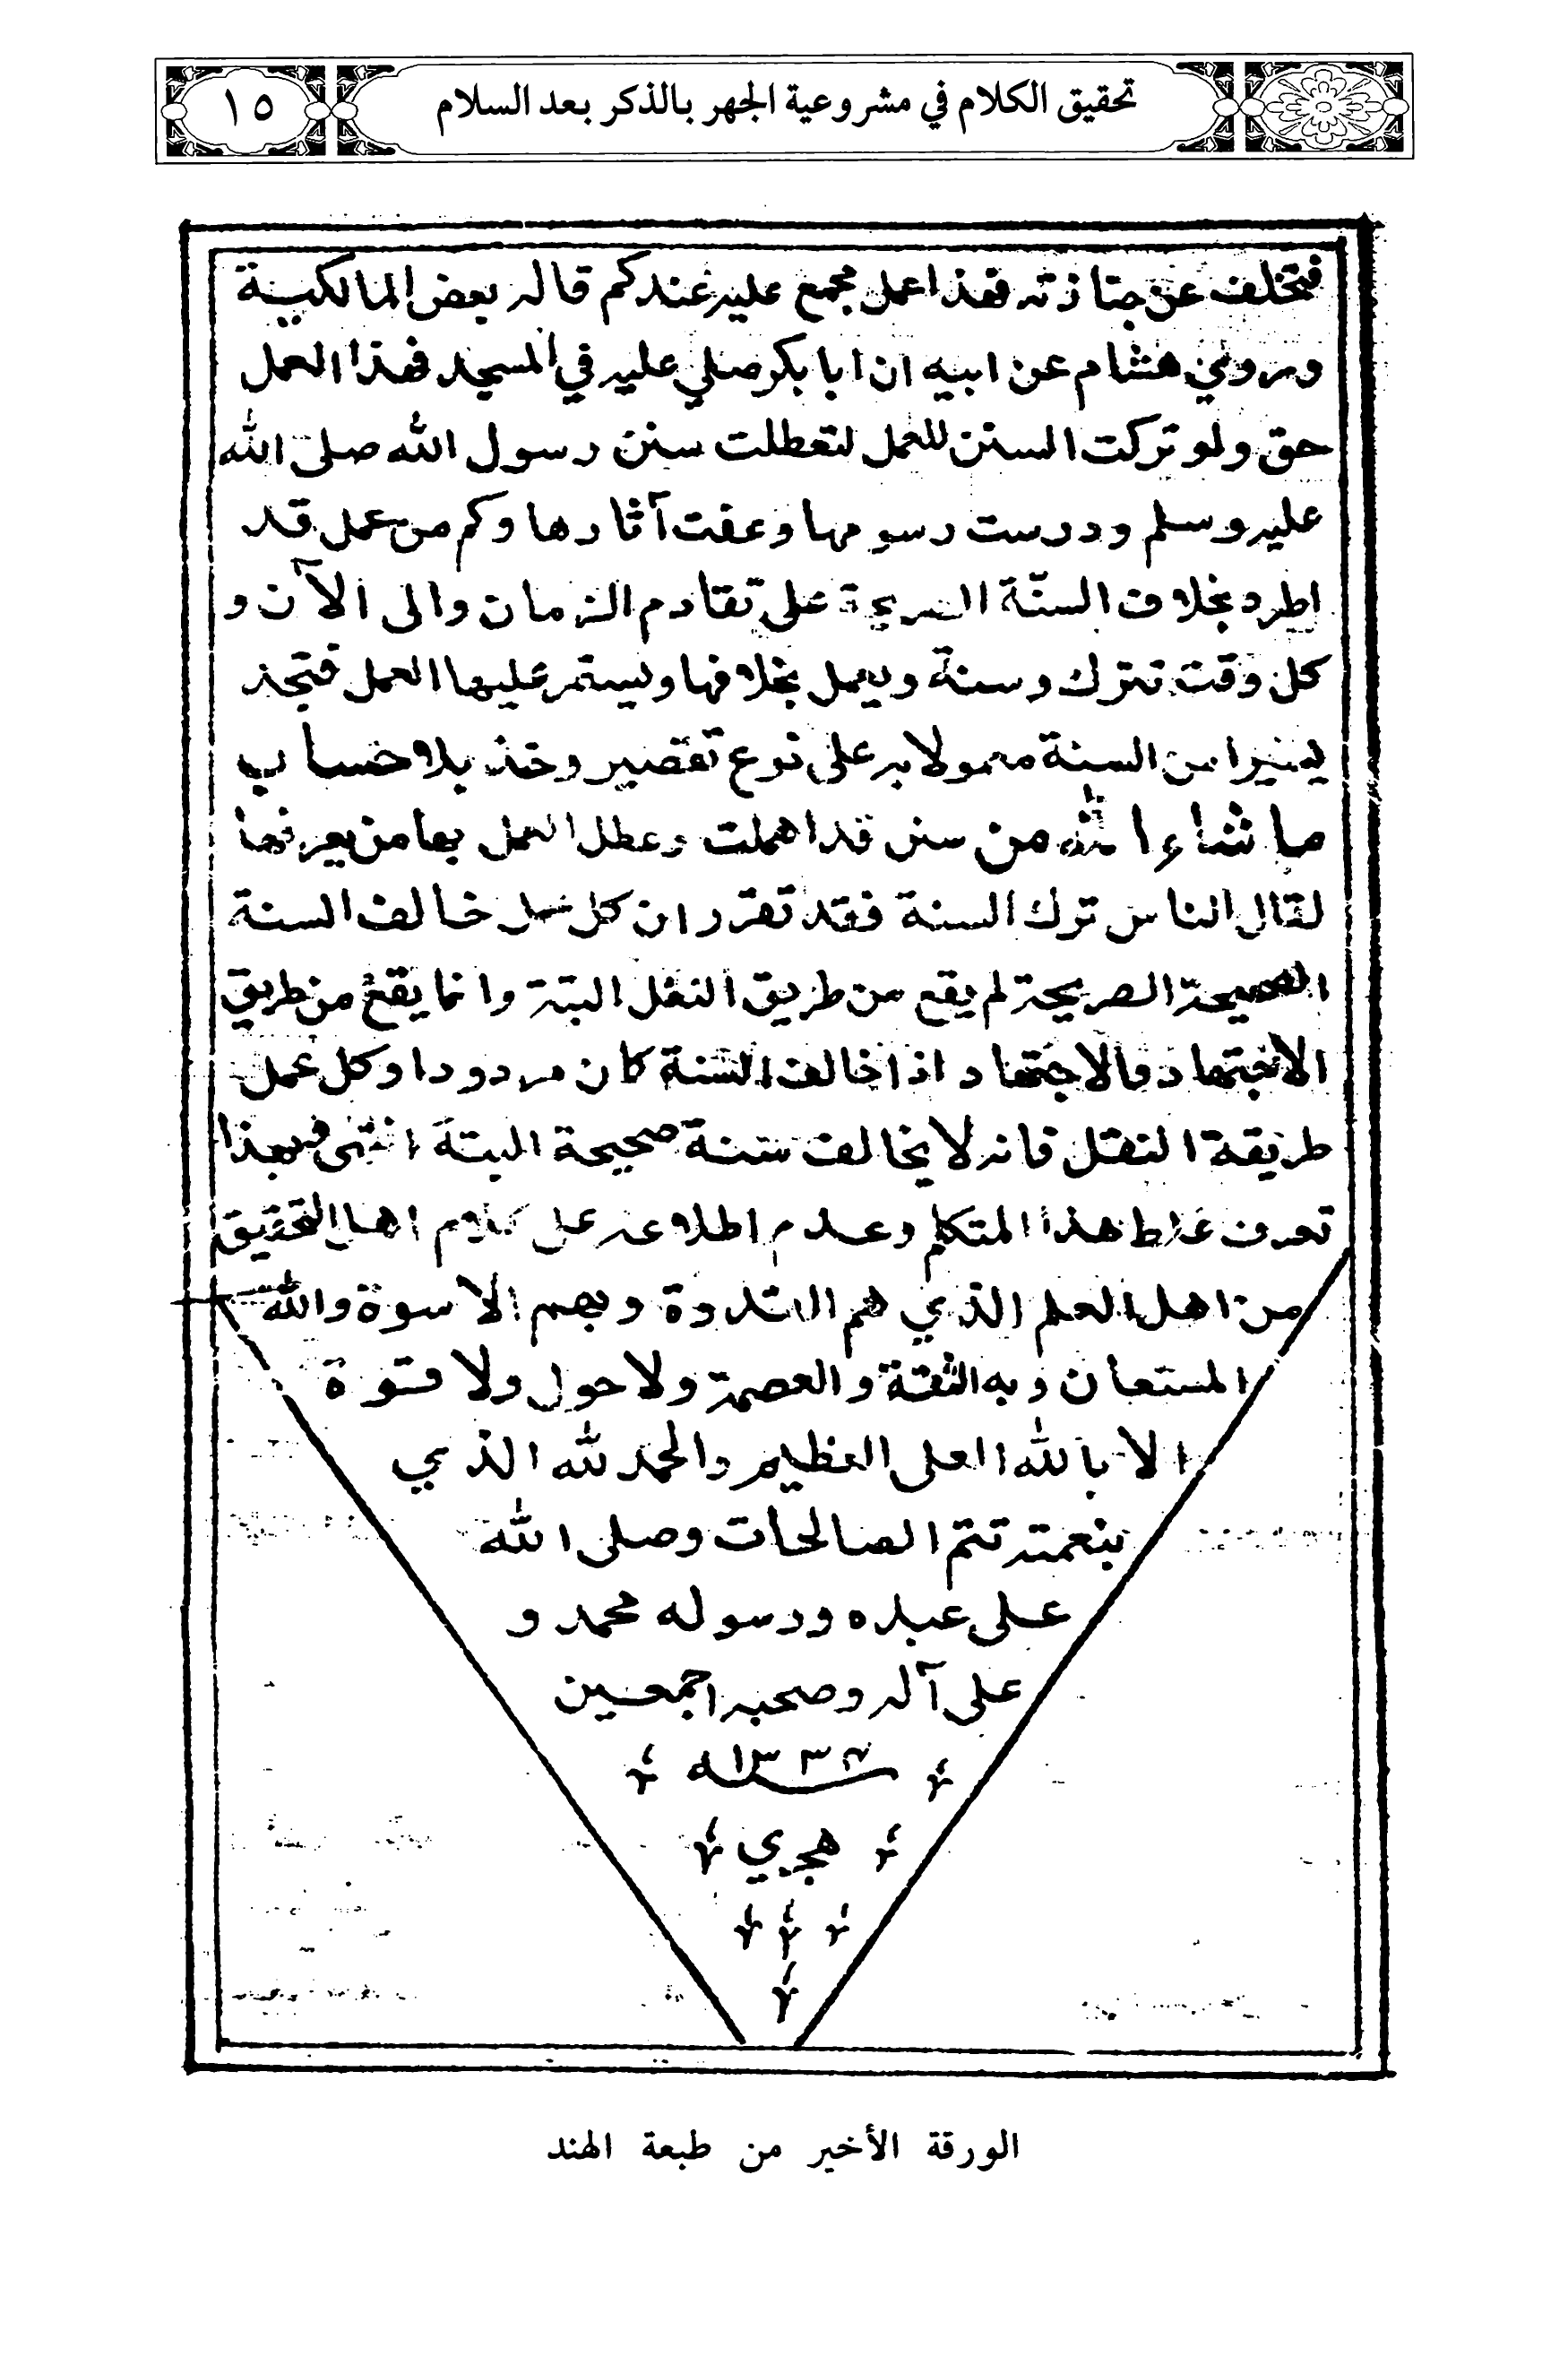 تحقيق الكلام في مشروعية الجهر بالذكر بعد السلام
١٥
فتخلف عن جنازته فهذا عمل مجمع عليه عندكم قاله بعض المالكية
وروى هشام عن ابيه ان ابا بكر صلي عليه في المسجد فهذا العمل
حق ولو تركت السنن للعمل لتعطلت سنن رسول الله صلى الله
عليه وسلم ودرست رسومها وعفت آثارها وكم من عمل قد
اطرد بخلاف السنّة الصريحة على تقادم الزمان والى الآن و
كل وقت تترك وسنة ويعمل بخلافها ويستمر عليها العمل فتجد
يسيرا من السنة معمولا به على نوع تقصير وخذ بلا حساب
ما شاء الله من سنن قد اهملت وعطل العمل بها من يعرفها
لقال الناس ترك السنة فقد تقرر ان كل عمل خالف السنة
الصحيحة الصريحة لم يقع من طريق النقل البتة وانما يقع من طريق
الاجتهاد والاجتهاد اذا خالف السنة كان مردودا وكل عمل
طريقة النقل فانه لا يخالف سنة صحيحة البتة انتهى فبهذا
تعرف غلط هذا المتكلم وعدم اطلاعه على كلام اهل التحقيق
من اهل العلم الذي هم القدوة وبهم الاسوة والله
المستعان وبه الثقة والعصمة ولا حول ولا قوة
الا بالله العلى العظيم والحمد لله الذي
بنعمته تتم الصالحات وصلى الله
على عبده ورسوله محمد و
على آله وصحبه اجمعين
هجري
الورقة الأخير من طبعة الهند